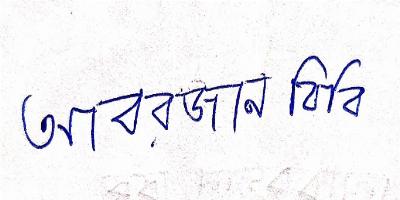 আবরজান বিবি